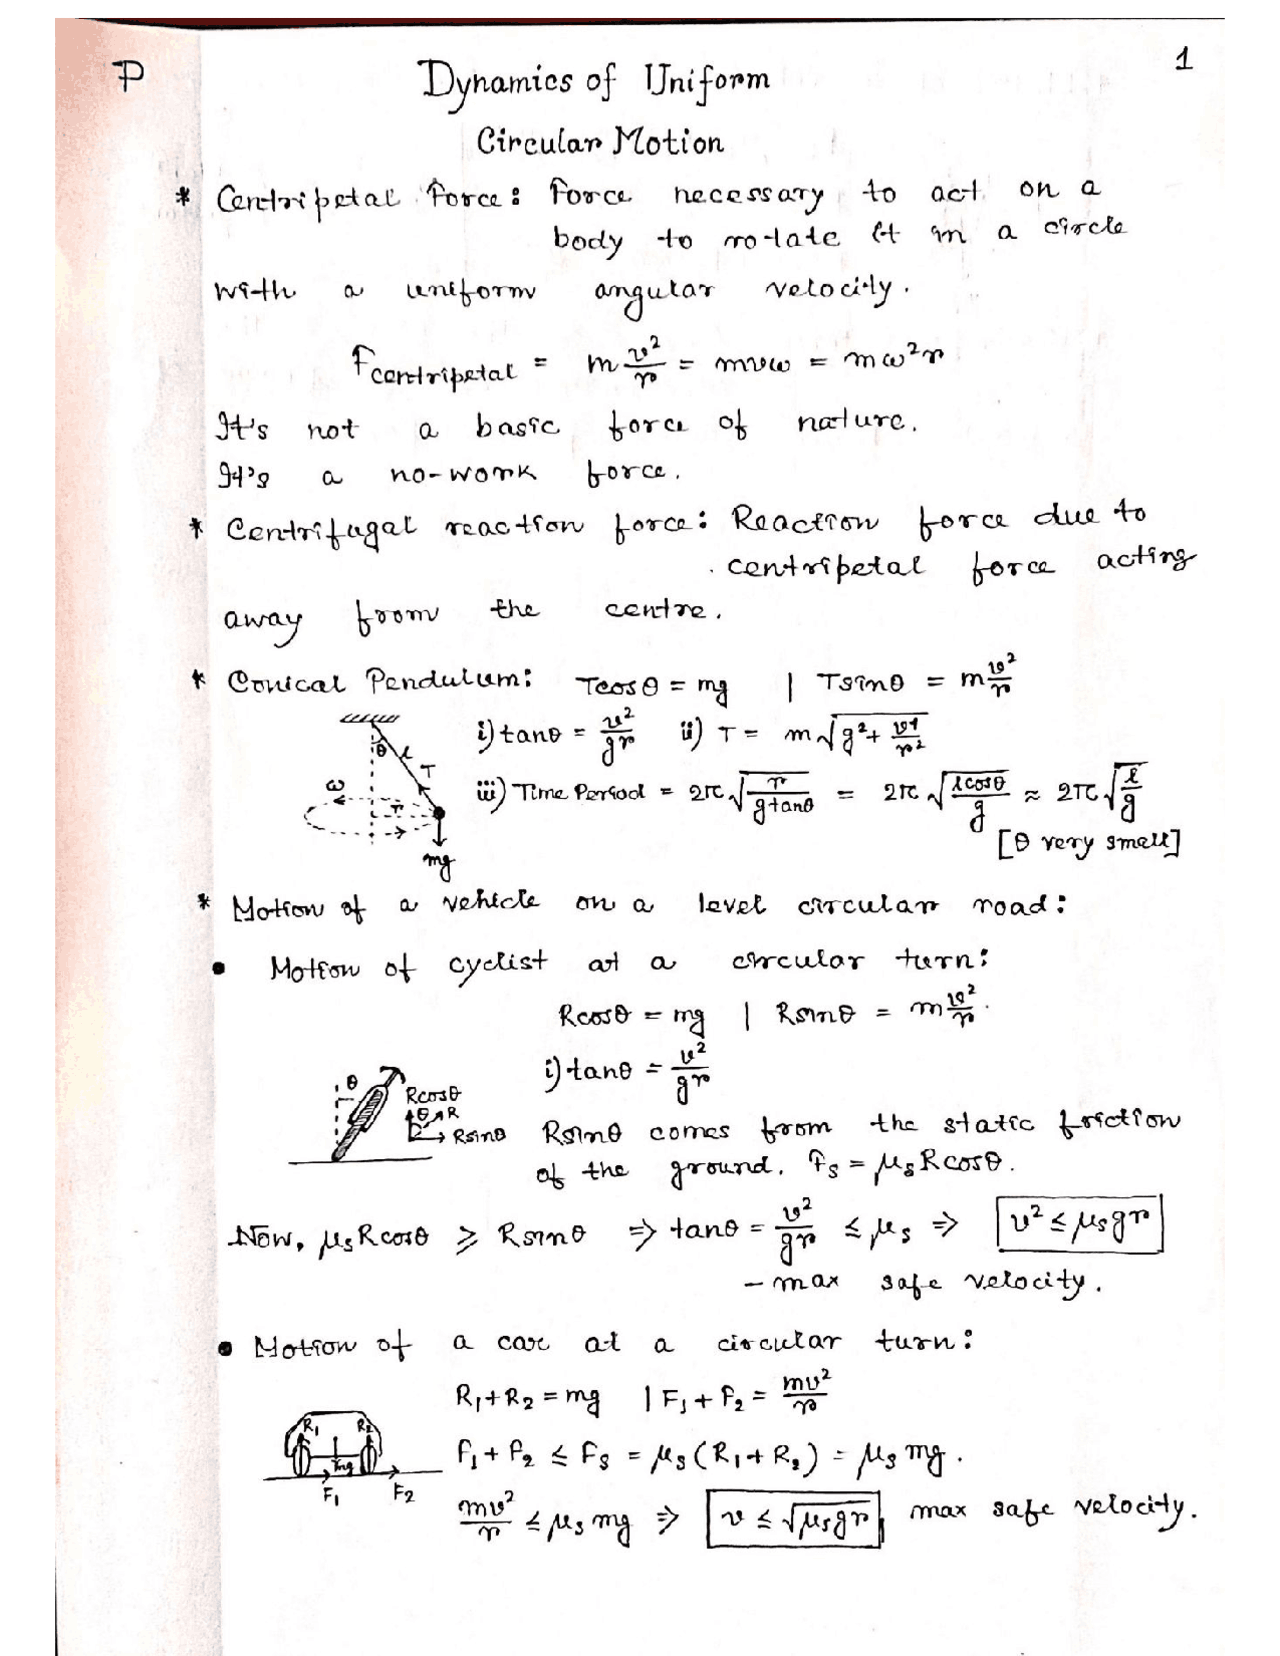 P
1
Dynamics of Uniform
Circular Motion
* Centripetal Force: Force necessary to act on a
body to rotate it in a circle
with a uniform angular velocity.
F_centripetal = m v²/r = mvω = mω²r
It's not a basic force of nature.
It's a no-work force.
* Centrifugal reaction force: Reaction force due to
centripetal force acting
away from the centre.
* Conical Pendulum: Tcosθ = mg | Tsinθ = m v²/r
i) tanθ = v²/gr ii) T = m√(g² + v⁴/r²)
iii) Time Period = 2π√(r/gtanθ) = 2π√(lcosθ/g) ≈ 2π√(l/g)
[θ very small]
θ l T
ω r
mg
* Motion of a vehicle on a level circular road:
• Motion of cyclist at a circular turn:
Rcosθ = mg | Rsinθ = m v²/r.
i) tanθ = v²/gr
θ Rcosθ
θ R
Rsinθ
Rsinθ comes from the static friction
of the ground. Fs = μsRcosθ.
Now, μsRcosθ ⩾ Rsinθ ⇒ tanθ = v²/gr ≤ μs ⇒ v² ≤ μsgr
– max safe velocity.
• Motion of a car at a circular turn:
R₁+R₂ = mg | F₁ + F₂ = mv²/r
R₁ R₂
mg
F₁ F₂
F₁ + F₂ ≤ Fs = μs(R₁+R₂) = μsmg.
mv²/r ≤ μsmg ⇒ v ≤ √μsgr, max safe velocity.